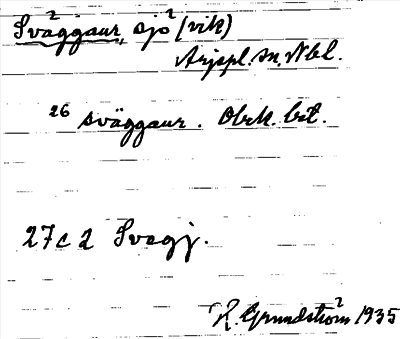 Svaggaur, sjö (vik)
Arjspl. sn, Nbl.
26 sväggaur. Obrk. bit.
27c2 Svagj.
R. Grundström 1935